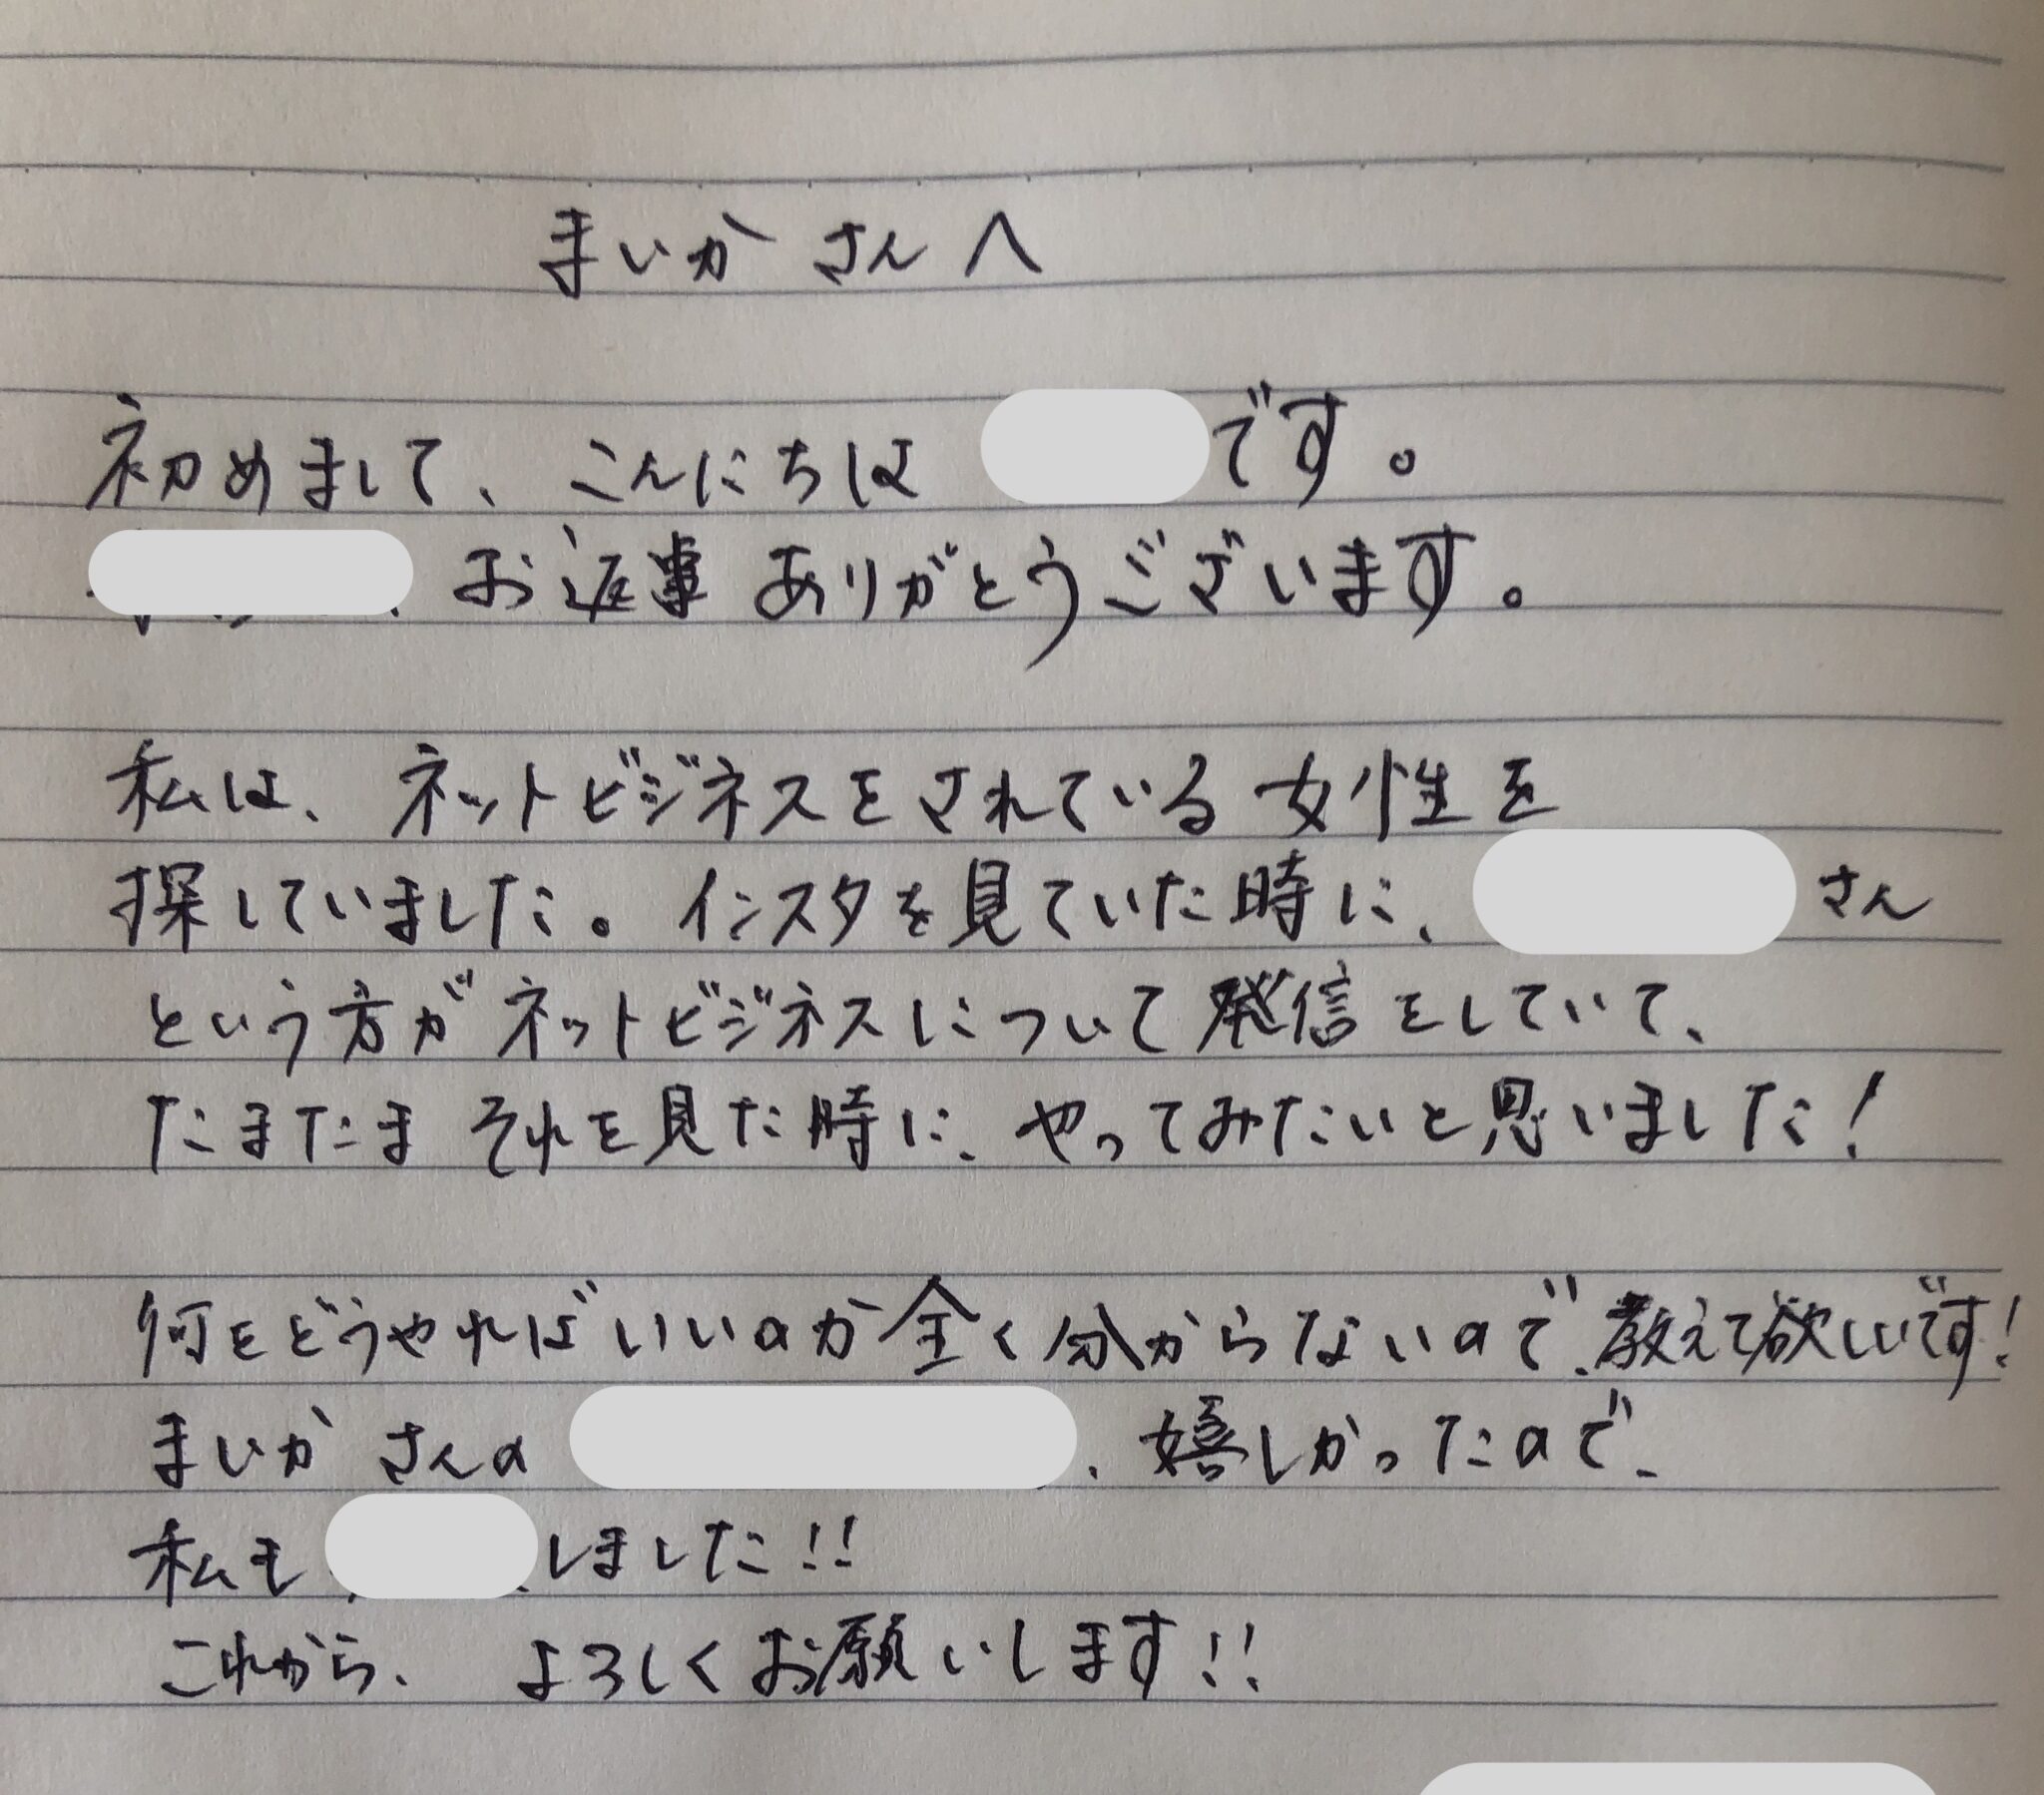 まいか さんへ
初めまして、こんにちは です。
お返事 ありがとうございます。
私は、ネットビジネスをされている女性を
探していました。インスタを見ていた時に、 さん
という方がネットビジネスについて発信をしていて、
たまたま それを見た時に、やってみたいと思いました!
何をどうやればいいのか全く分からないので、教えて欲しいです!
まいか さんの 、嬉しかったので、
私も しました!!
これから、 よろしくお願いします!!